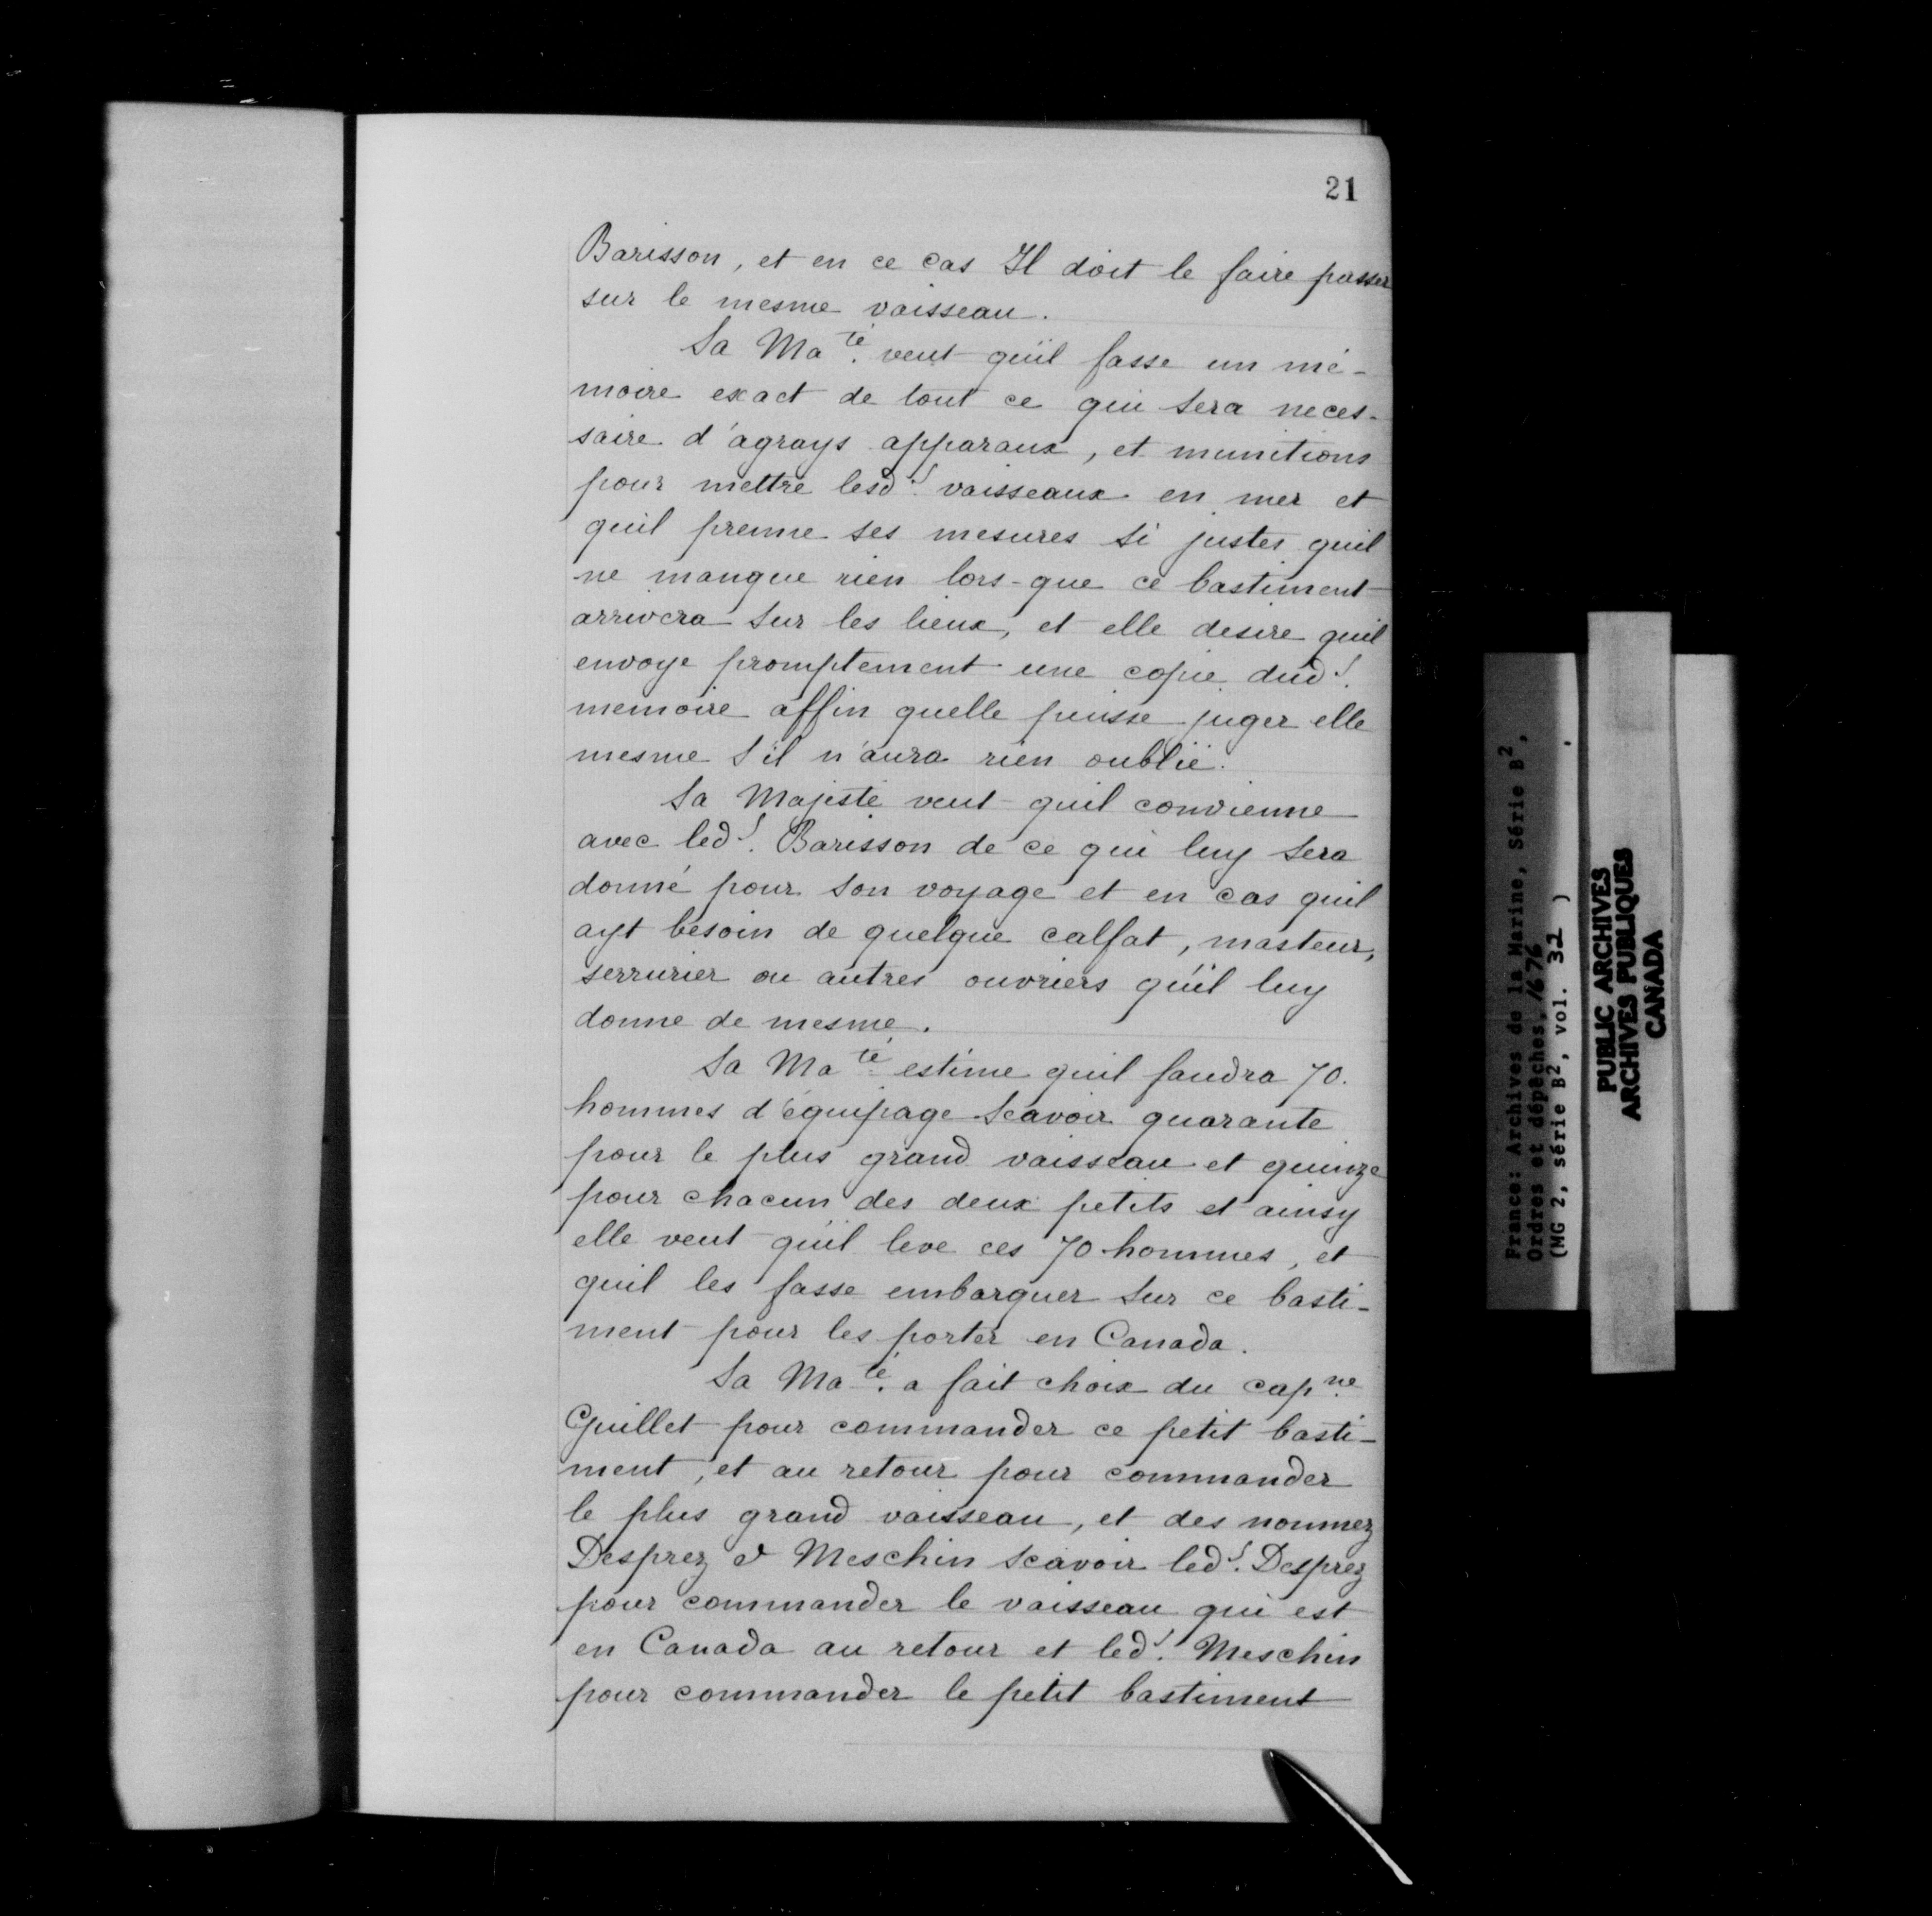 21
Barisson, et en ce cas Il doit le faire passer
sur le mesme vaisseau.
Sa Ma.té veut qu'il fasse un mé-
moire exact de tout ce qui sera neces-
saire d'agrays apparaux, et munitions
pour mettre lesd.s vaisseaux en mer et
quil prenne ses mesures si justes quil
ne manque rien lors-que ce bastiment
arrivera sur les lieux, et elle desire quil
envoye promptement une copie dud.s
memoire affin quelle puisse juger elle
mesme s'il n'aura rien oublié.
Sa Majesté veut quil convienne
avec led.s Barisson de ce qui luy sera
donné pour son voyage et en cas quil
ayt besoin de quelque calfat, masteur,
serrurier ou autres ouvriers qu'il luy
donne de mesme.
Sa Ma.té estime quil faudra 70.
hommes d'équipage scavoir quarante
pour le plus grand vaisseau et quinze
pour chacun des deux petits et ainsy
elle veut qu'il leve ces 70 hommes, et
quil les fasse embarquer sur ce basti-
ment pour les porter en Canada.
Sa Ma.té a fait choix du cap.ne
Guillet pour commander ce petit basti-
ment, et au retour pour commander
le plus grand vaisseau, et des nommez
Desprez & Meschin scavoir led.s Desprez
pour commander le vaisseau qui est
en Canada au retour et led.s Meschin
pour commander le petit bastiment
France: Archives de la Marine, Série B2,
Ordres et dépêches, 1676
(MG 2, série B2, vol. 32 )
PUBLIC ARCHIVES
ARCHIVES PUBLIQUES
CANADA